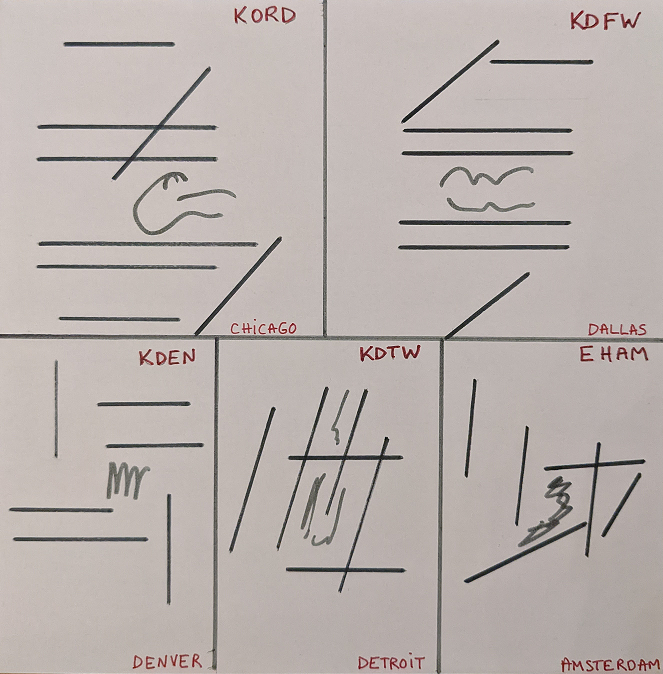 KORD
CHiCAGO
KDFW
DALLAS
KDEN
DENVER
KDTW
DETROiT
EHAM
AMSTERDAM